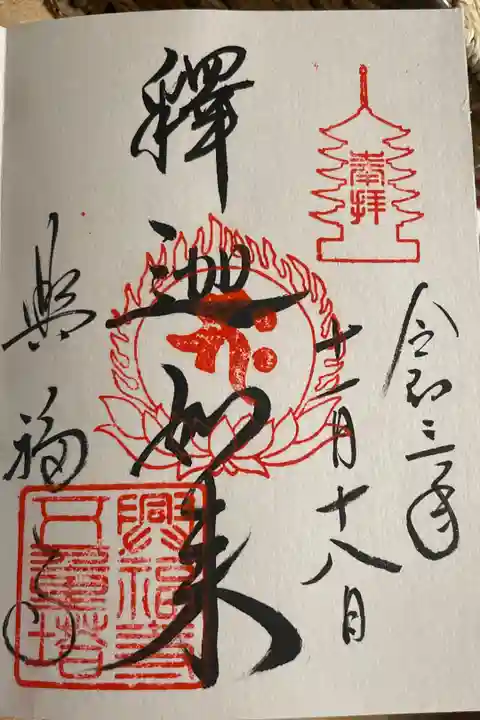 奉拝
令和三年
十一月十八日
釋迦如来
興福寺
興福寺
五重塔